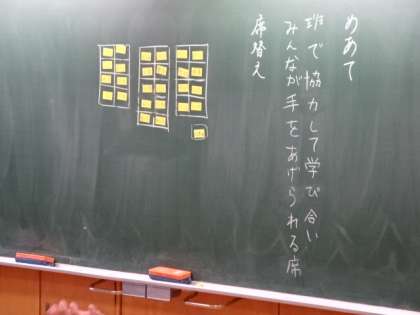 めあて
班で協力して学び合い
みんなが手をあげられる席
席替え